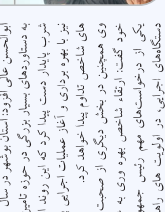 ابوالحسن عالی افزود: استان بوشهر در سال
به دستاوردهای بسیار بزرگی در حوزه تامین
شرب پایدار دست پیدا کرد که این روند
نیز با بهره برداری و آغاز عملیات اجرایی
های شاخص تداوم پیدا خواهد کرد.
وی همچنین در بخش دیگری از صحبت
خود گفت: ارتقاء شاخص بهره وری به
یکی از درخواست‌های مهم رئیس جمهو
در اولویت
دستگاه‌های